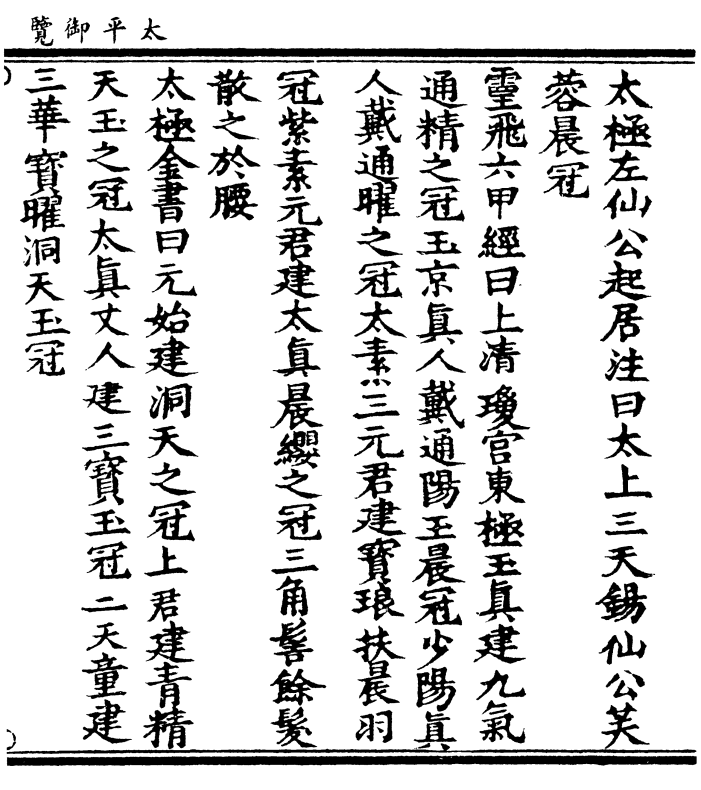 太平御覽
太極左仙公起居注曰太上三天錫仙公芙
蓉晨冠
靈飛六甲經曰上清瓊宮東極玉真建九氣
通精之冠玉京真人戴通陽玉晨冠少陽真
人戴通曜之冠太素三元君建寶琅扶晨羽
冠紫素元君建太真晨纓之冠三角髻餘髮
散之於腰
太極金書曰元始建洞天之冠上君建青精
天玉之冠太真丈人建三寶玉冠二天童建
三華寶曜洞天玉冠